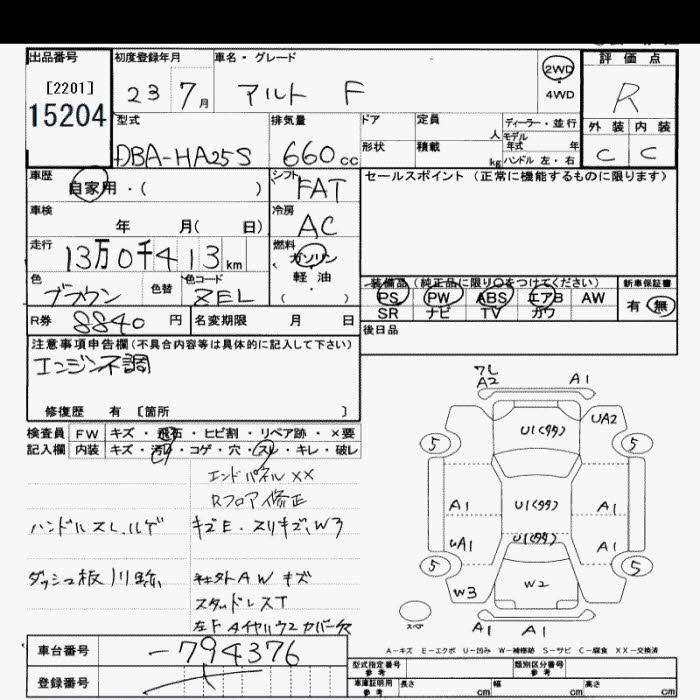 出品番号 初度登録年月 車名・グレード 2WD 評価点
[2201] 23 7月 アルト F 4WD R
15204 型式 排気量 ドア 定員 人 ディーラー・並行 外装 内装
DBA-HA25S 660cc 形状 積載 kg モデル年式 年 ハンドル 左・右 C C
車歴 シフト FAT セールスポイント(正常に機能するものに限ります)
自家用・( )
車検 年 月( 日) 冷房 AC
走行 13万0千413km 燃料 ガソリン
軽油
( )
色 ブラウン 色替 色コード ZEL
装備品(純正品に限り○をつけてください) 新車保証書
PS PW ABS エアB AW 有 無
SR ナビ TV カワ
R券 8840円 名変期限 月 日 後日品
注意事項申告欄(不具合内容等は具体的に記入して下さい)
エンジン不調
修復歴 有 [箇所 ]
検査員 FW キズ・飛石・ヒビ割・リペア跡・×要
記入欄 内装 キズ・汚れ・コゲ・穴・スレ・キレ・破レ
エンドパネルXX
Rフロア修正
ハンドルスレ. キズE・スリキズ、W3
ダッシュ板 AW キズ
スタッドレスT
左F
ワレ
A2 A1
U1(タタ) UA2
5 5
A1 U1(タタ) A1
UA1 U1(タタ) A1
5 5
W3 W2
スペア A1 A1
A-キズ E-エクボ U-凹み W-補修跡 S-サビ C-腐食 XX-交換済
車台番号 -794376
登録番号
型式指定番号 参考 類別区分番号 参考
車庫証明用 参考 長さ cm 幅 cm 高さ cm